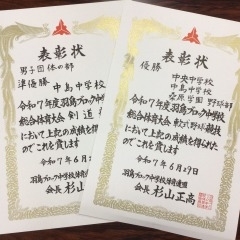 表彰状
男子団体の部
準優勝 中島中学校
令和7年度羽島ブロック中学校
総合体育大会 剣道
において上記の成績を
のでこれを賞します
令和7年6月
羽島ブロック中学校体育連盟
会長 杉山
表彰状
優勝
中央中学校
中島中学校
桑原学園 野球部
令和7年度羽島ブロック中学校
総合体育大会 軟式野球競技
において上記の成績を得られた
のでこれを賞します
令和7年6月29日
羽島ブロック中学校体育連盟
会長 杉山正高